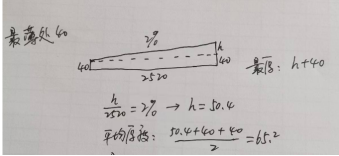 最薄处40
2%
h
40
40
2520
最厚: h+40
h/2520 = 2% → h=50.4
平均厚度: (50.4+40+40)/2 = 65.2